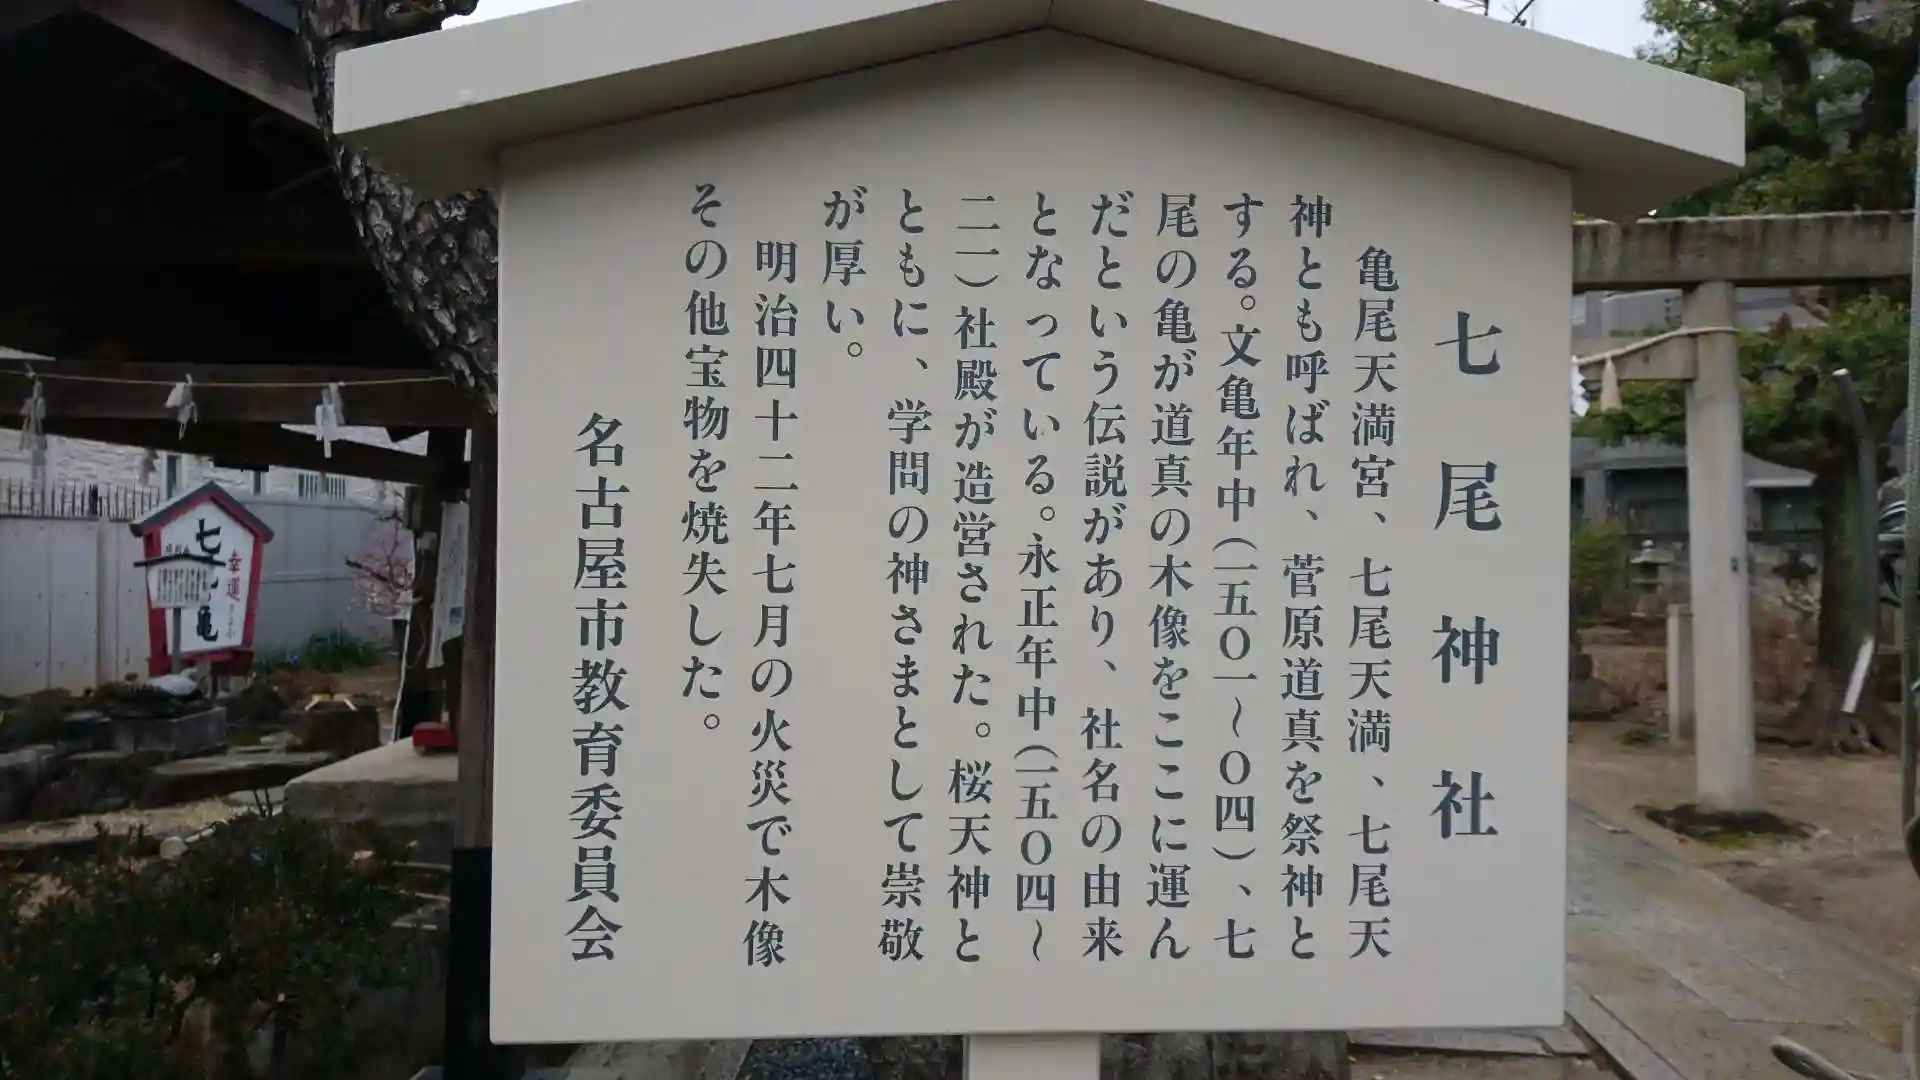 七尾神社
亀尾天満宮、七尾天満、七尾天
神とも呼ばれ、菅原道真を祭神と
する。文亀年中（一五〇一～〇四）、七
尾の亀が道真の木像をここに運ん
だという伝説があり、社名の由来
となっている。永正年中（一五〇四～
二一）社殿が造営された。桜天神と
ともに、学問の神さまとして崇敬
が厚い。
明治四十二年七月の火災で木像
その他宝物を焼失した。
名古屋市教育委員会
幸運
七
亀